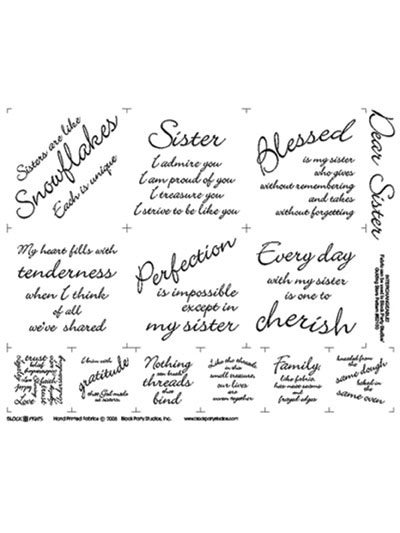 Sisters are like
Snowflakes
Each is unique
Sister
I admire you
I am proud of you
I treasure you
I strive to be like you
Blessed
is my sister
who gives
without remembering
and takes
without forgetting
Dear Sister
My heart fills with
tenderness
when I think
of all
we've shared
Perfection
is impossible
except in
my sister
Every day
with my sister
is one to
cherish
trust
Love
Understanding
I thank with
gratitude
that God made
us sisters
Nothing
can break the
threads
that
bind
Like the threads
in this
small treasure,
our lives
are
woven together
Family:
like fabric,
has most seams
and
frayed edges
kneaded from the
same dough
baked in
the
same oven
BLOCK PARTY
Hand Printed Fabrics © 2008 Block Party Studios, Inc.
www.blockpartystudios.com